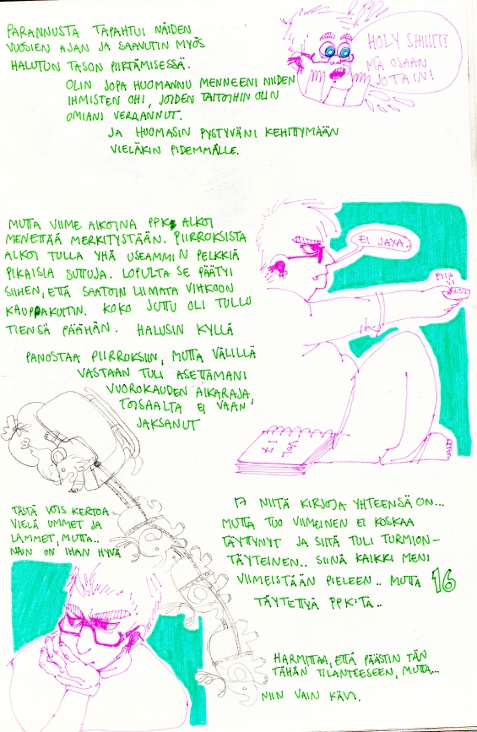 PARANNUSTA TAPAHTUI NÄIDEN
VUOSIEN AJAN JA SAAVUTIN MYÖS
HALUTUN TASON PIIRTÄMISESSÄ.
OLIN JOPA HUOMANNU MENNEENI NIIDEN
IHMISTEN OHI, JOIDEN TAITOIHIN OLIN
OMIANI VERRANNUT.
JA HUOMASIN PYSTYVÄNI KEHITTYMÄÄN
VIELÄKIN PIDEMMÄLLE.
HOLY SHIIIT!
MÄ OSAAN
JOTAIN!
MUTTA VIIME AIKOINA PPK ALKOI
MENETTÄÄ MERKITYSTÄÄN. PIIRROKSISTA
ALKOI TULLA YHÄ USEAMMIN PELKKIÄ
PIKAISIA SUTTUJA. LOPULTA SE PÄÄTYI
SIIHEN, ETTÄ SAATOIN LIIMATA VIHKOON
KAUPPAKUITIN. KOKO JUTTU OLI TULLU
TIENSÄ PÄÄHÄN. HALUSIN KYLLÄ
PANOSTAA PIIRROKSIIN, MUTTA VÄLILLÄ
VASTAAN TULI ASETTAMANI
VUOROKAUDEN AIKARAJA,
TOISAALTA EI VAAN
JAKSANUT
EI JAXA.
TÄSTÄ VOIS KERTOA
VIELÄ UMMET JA
LAMMET, MUTTA..
NÄIN ON IHAN HYVÄ
17 NIITÄ KIRJOJA YHTEENSÄ ON...
MUTTA TUO VIIMEINEN EI KOSKAA
TÄYTTYNYT JA SIITÄ TULI TURMION-
TÄYTEINEN.. SIINÄ KAIKKI MENI
VIIMEISTÄÄN PIELEEN.. MUTTA 16
TÄYTETTYÄ PPK:TA..
HARMITTAA, ETTÄ PÄÄSTIN TÄN
TÄHÄN TILANTEESEEN, MUTTA...
NIIN VAIN KÄVI.